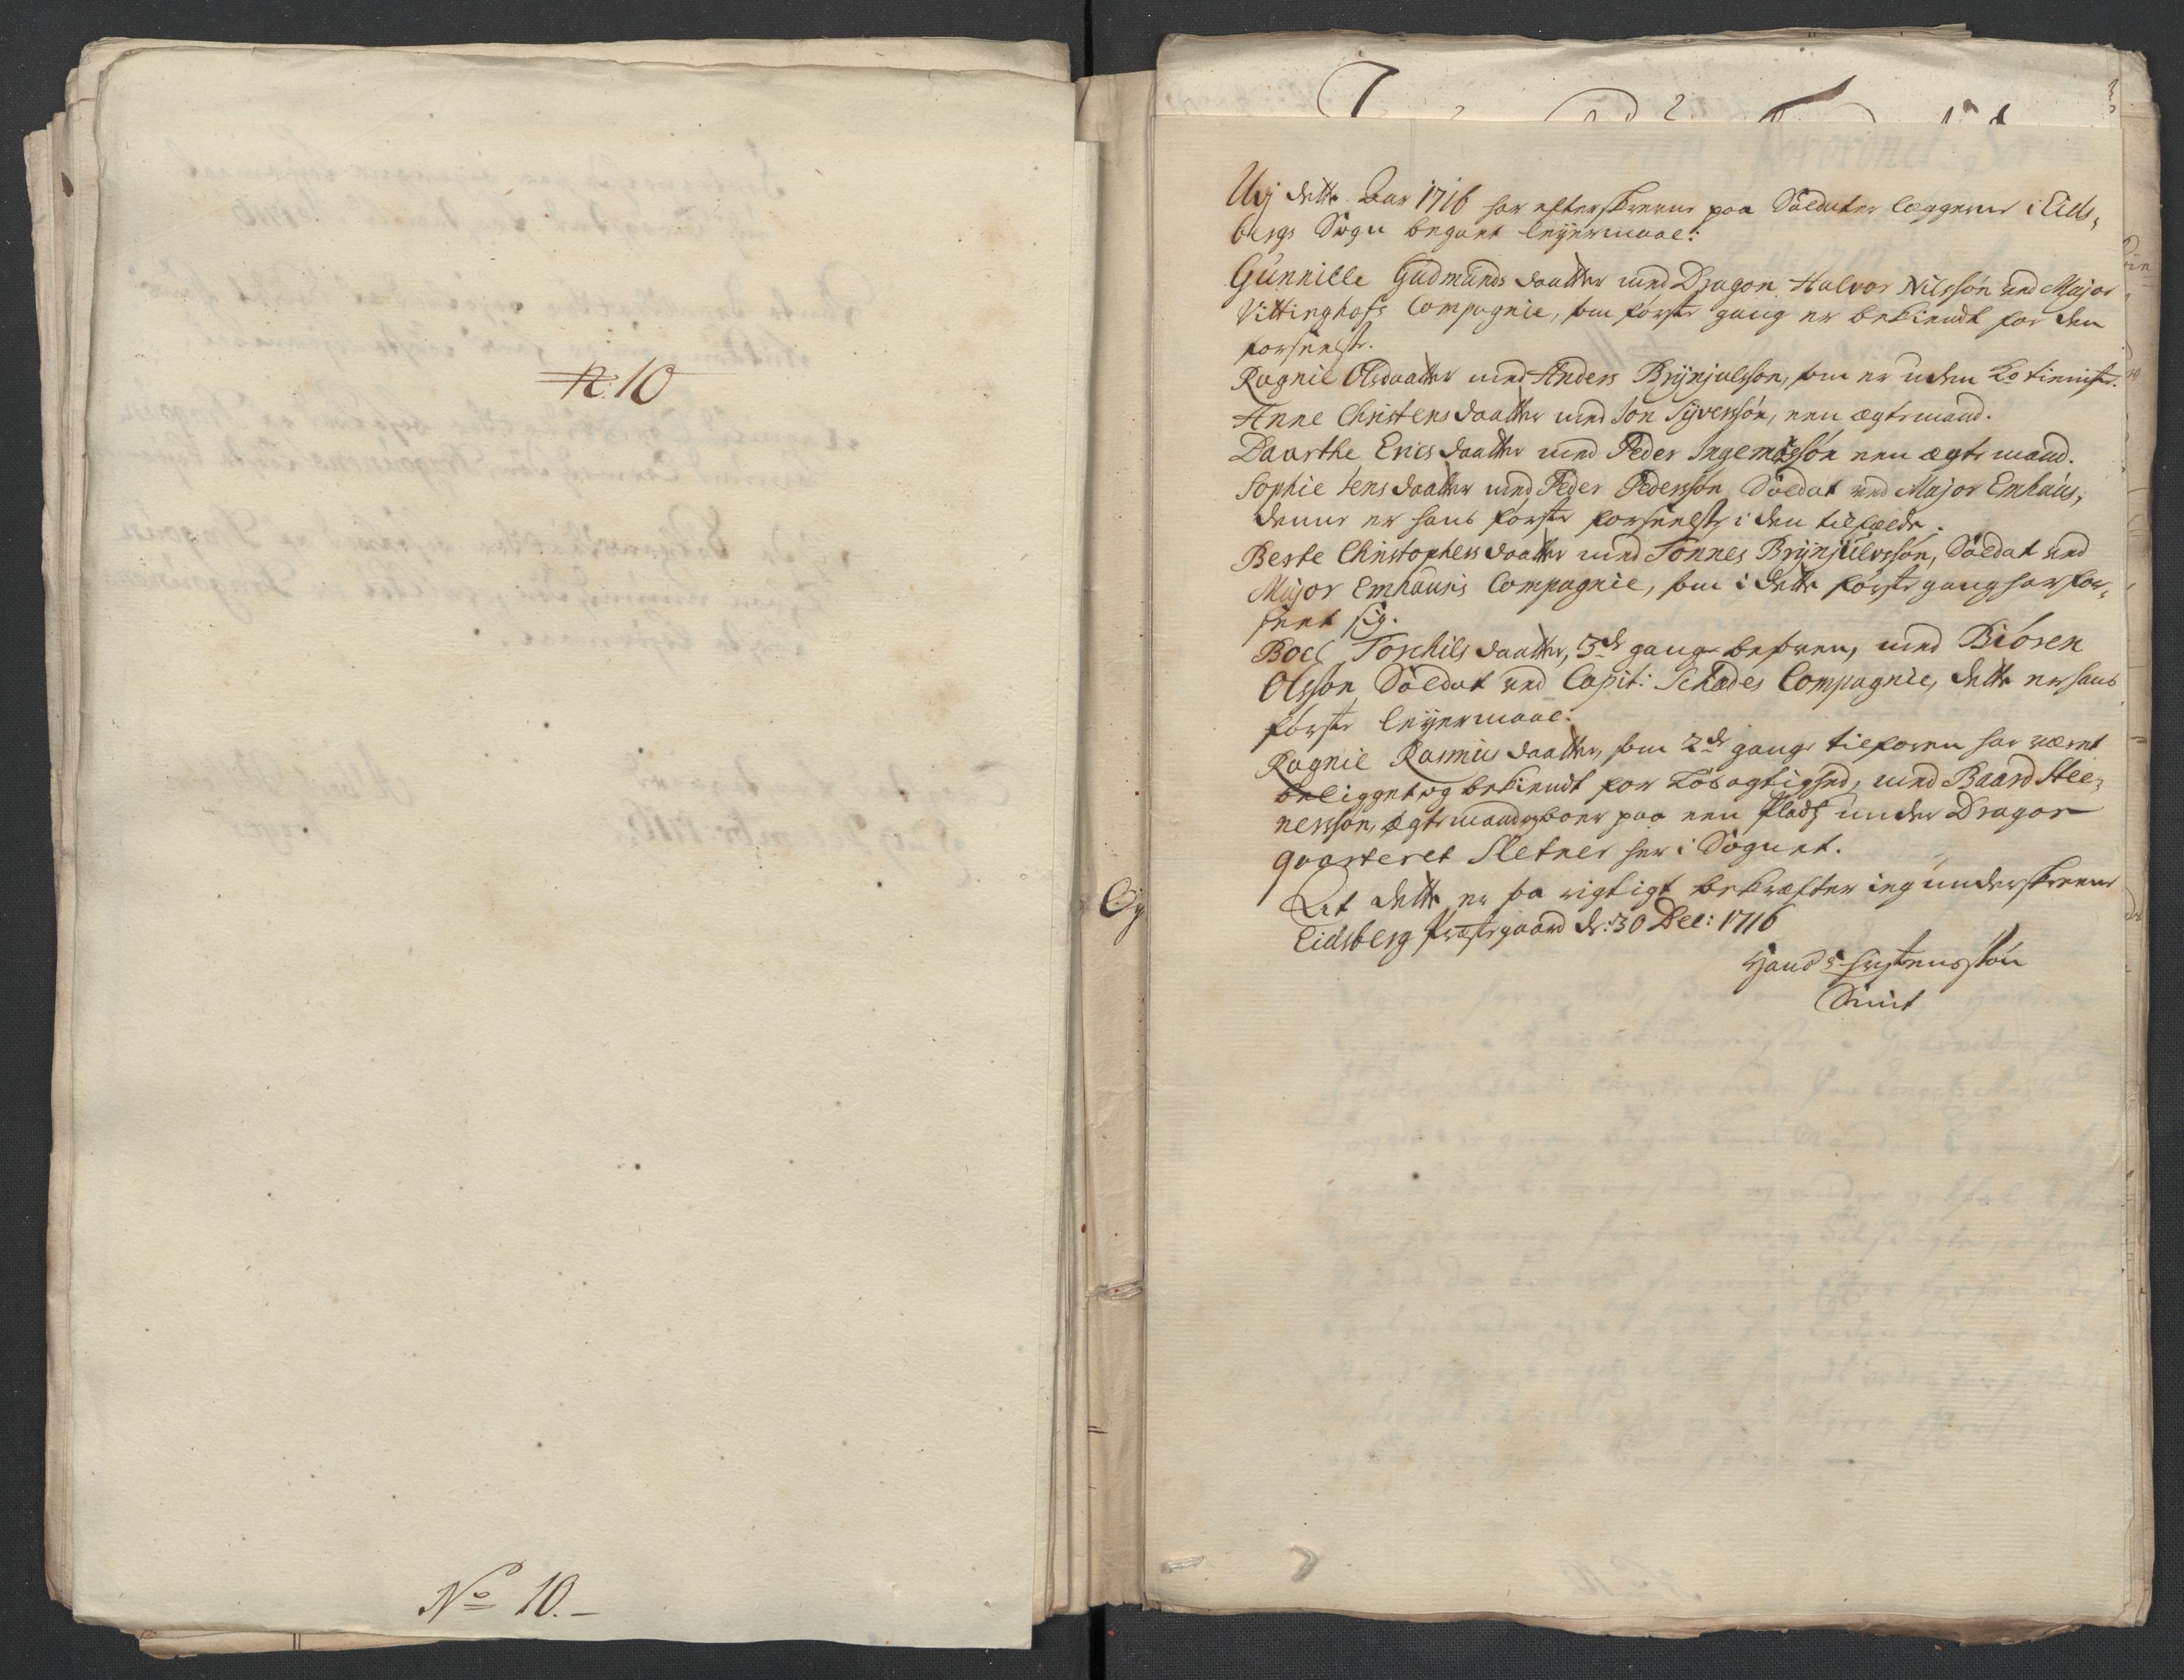 N: 10
No 10.-
Udj dette Aar 1716 har efterskrevne paa Soldater læggerne i Eids,
bergs Sogn begaaet leyermaal:
Gunnille Gudmunds daatter med Dragon Halvor Nilssøn und Major
Vittinghofs Compagnie, som første gang er bekiendt for den
forseelse.
Ragnil Olsdaatter med Anders Brynjulsson, som er uden K: tieniste.
Anne Christens daatter med Jon Syverssøn, een ægtemand.
Daarthe Erics daatter med Peder Ingemarssøn een ægtemand.
Sophie Jens daatter med Peder Pederssøn Soldat und Major Emhaus,
denne er hans første forseelse i den tilfælde.
Berte Christophers daatter med Tønnes Brynjulvssøn, Soldat und
Major Emhausis Compagnie, som i dette første gang har for,
seet sig.
Boel Torchils daatter, 3de gange besoven, med Biøren
Olsson Soldat und Capit: Schades Compagnie, dette er hans
første leyermaal.
Ragnil Rasmus daatter, som 2de gange tilforen har været
beligget og bekiendt for Løsagtighed, med Baard Stee,
nerssøn, ægtemand og boer paa een Plads under Dragon
qvarteret Sletner her i Sognet.
At dette er saa rigtigt bekræfter ieg underskrevne
Eidsberg Præstegaard d: 30 Dec: 1716
Hans Christenssøn